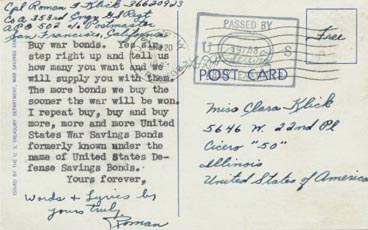 Cpl Roman F Klick 36620923
Co a 353rd Engr Gl Regt
APO 502 c/o Postmaster
San Francisco, California
Buy war bonds. Yes sir,
step right up and tell us
how many you want and we
will supply you with them.
The more bonds we buy the
sooner the war will be won.
I repeat buy, buy and buy
more, more and more United
States War Savings Bonds
formerly known under the
name of United States De-
fense Savings Bonds.
Yours forever,
Words & Lyrics by
yours truly,
Roman
ISSUED BY THE U. S. TREASURY DEPARTMENT, WAR SAVINGS
PASSED BY
U S
POST CARD
Free
Miss Clara Klick
5646 W. 22nd Pl
Cicero "50"
Illinois
United States of America